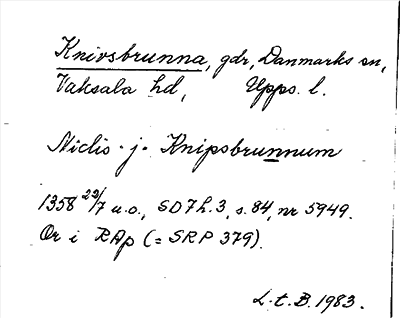 Knivsbrunna, gdr, Danmarks sn,
Vaksala hd, Upps. l.
Niclis · j · Knipsbrunnum
1358 23/7 u.o., SD7h.3, s.84, nr 5949.
Or i RAp (= SRP 379).
L.t.B. 1983.